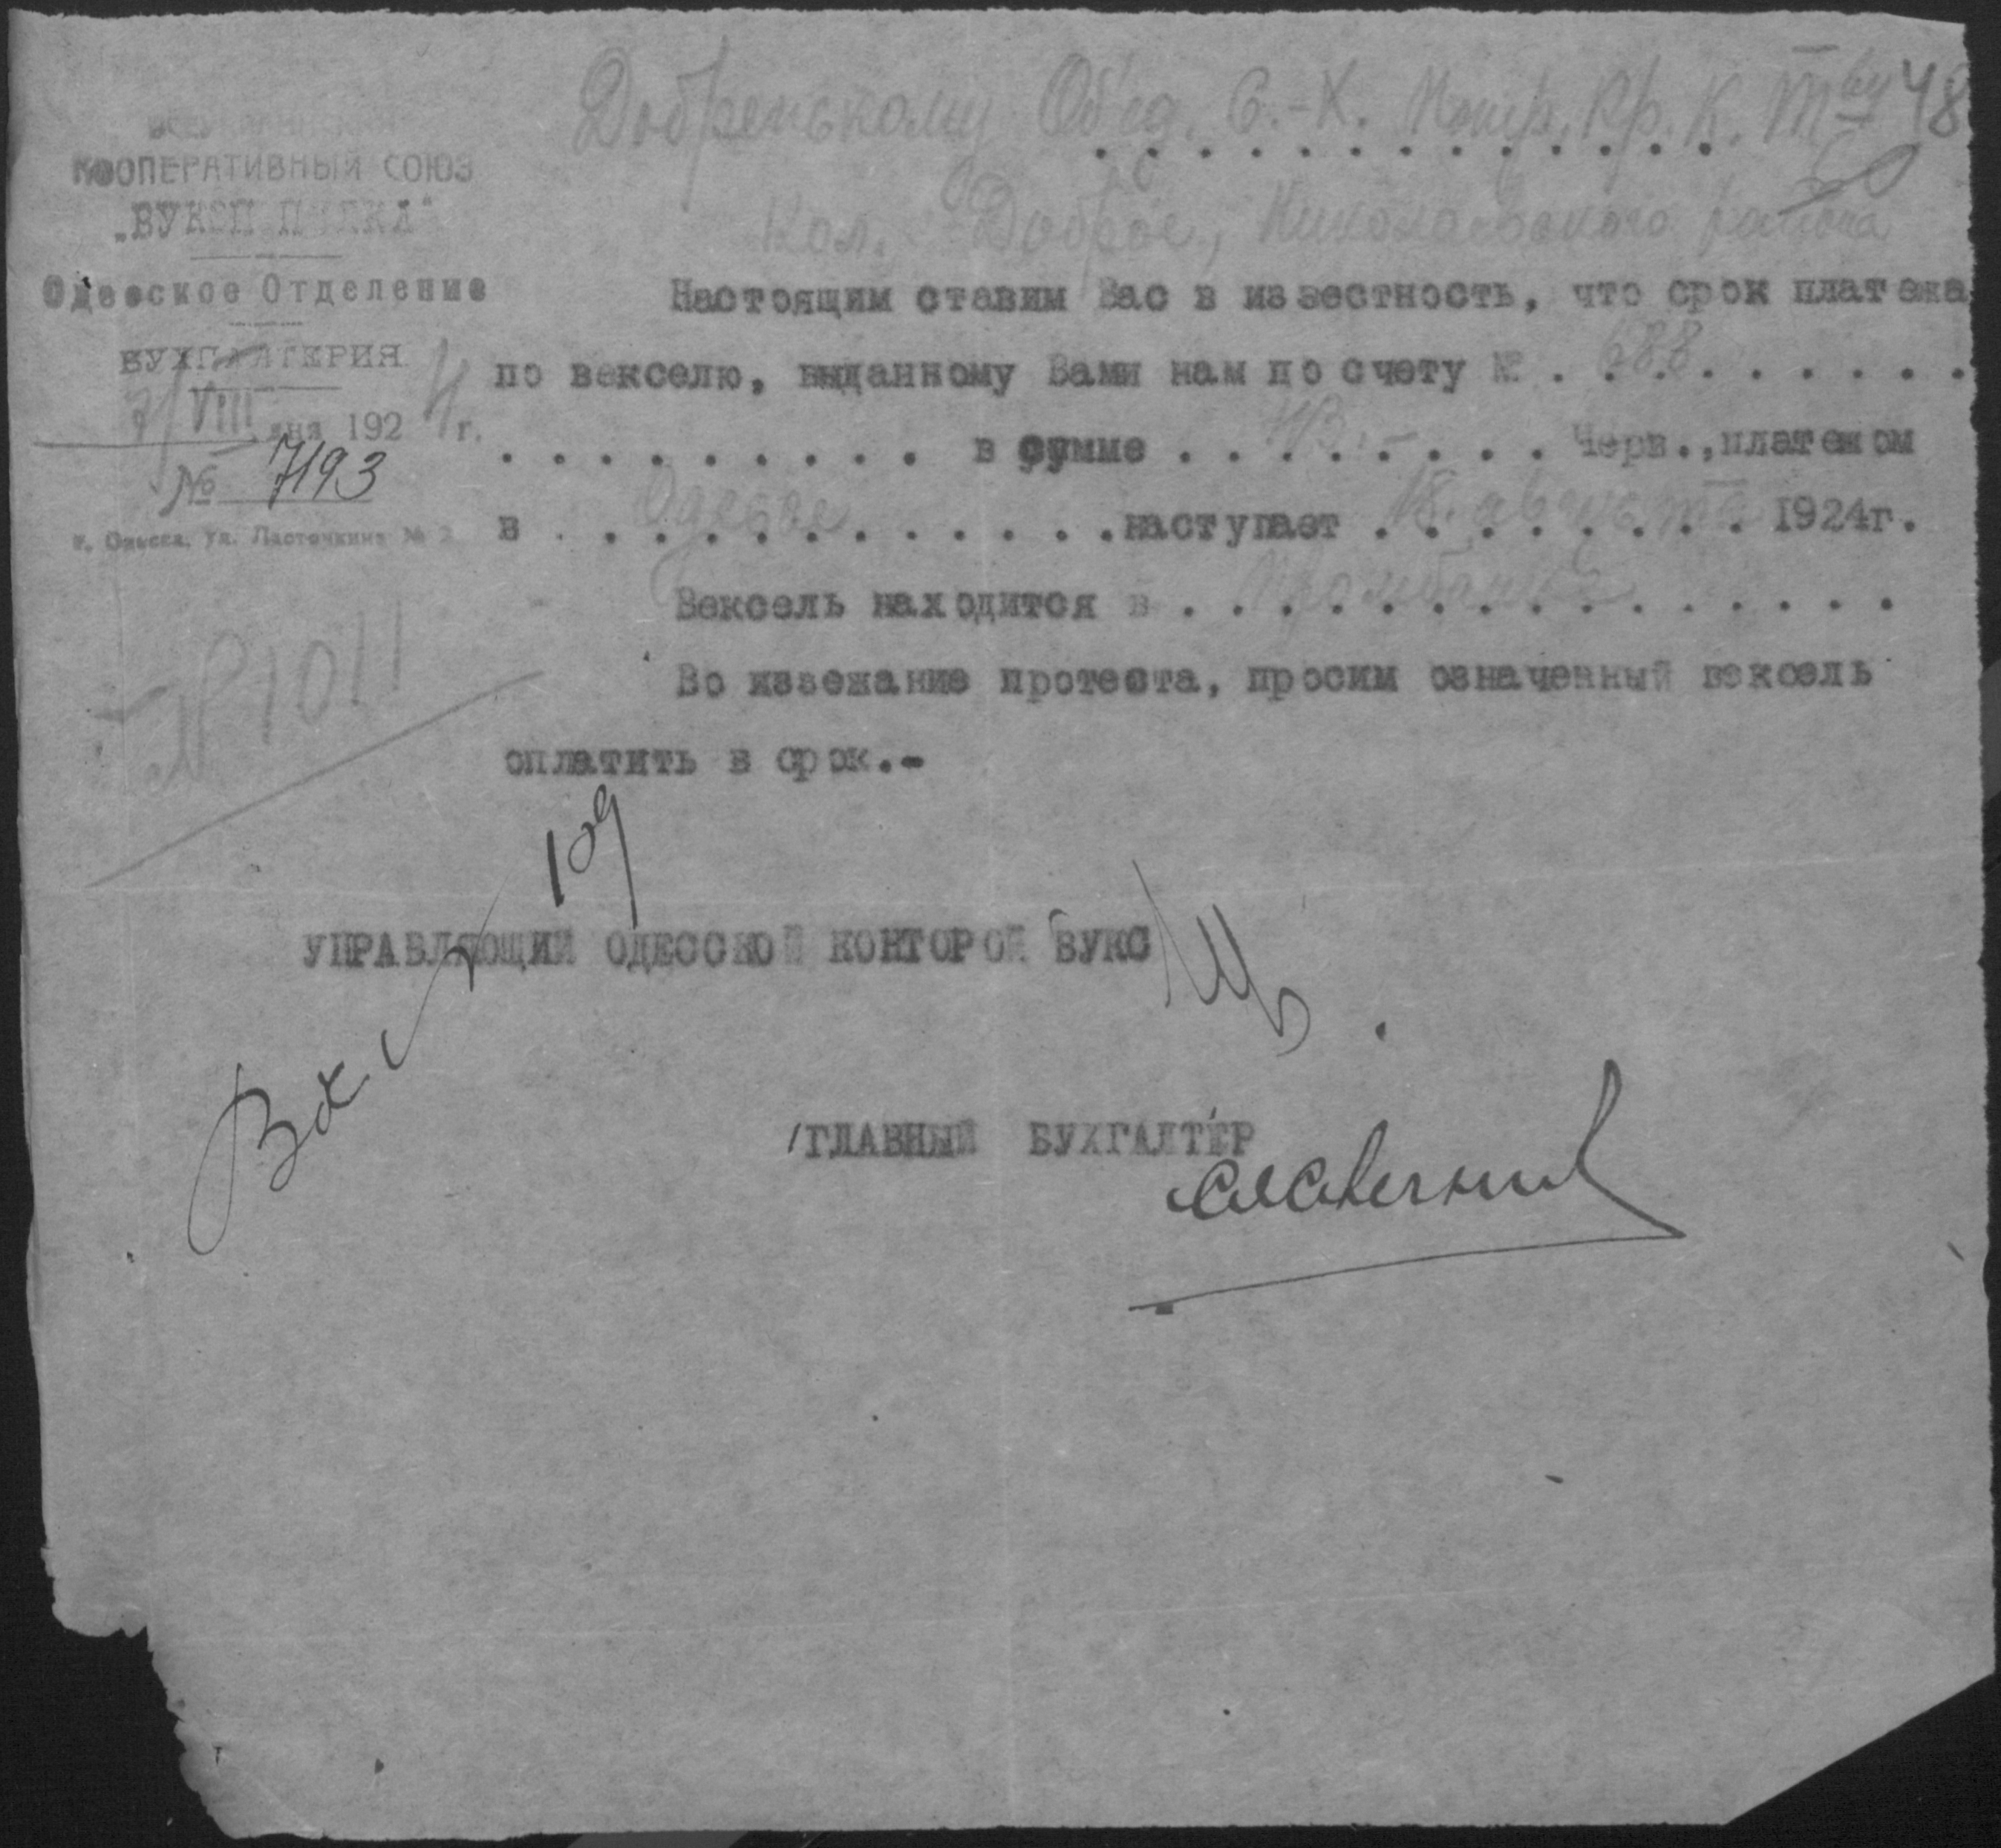 Добренькому Об'ед. С.-Х. Потр. Кр. К. Т-ву 48
60
КООПЕРАТИВНЫЙ СОЮЗ
Кол. Доброе, Николаевского района
Одесское Отделение
БУХГАЛТЕРИЯ
VIII дня 1924 г.
№ 7193
г. Одесса, ул. Ласточкина № 2
Настоящим ставим Вас в известность, что срок платежа
по векселю, выданному Вами нам по счету № . 688 . . . . . . .
. . . . . . . . . в сумме . . . . . . . . Черв., платежом
в . Одессе . . . . . . . . . . наступает . 18. августа . . 1924г.
Вексель находится в . Промбанке . . . . . . . . . . . .
Во избежание протеста, просим означенный вексель
оплатить в срок.-
№ 1011
УПРАВЛЯЮЩИЙ ОДЕССКОЙ КОНТОРОЙ ВУКС
Вх. № 109
ГЛАВНЫЙ БУХГАЛТЕР